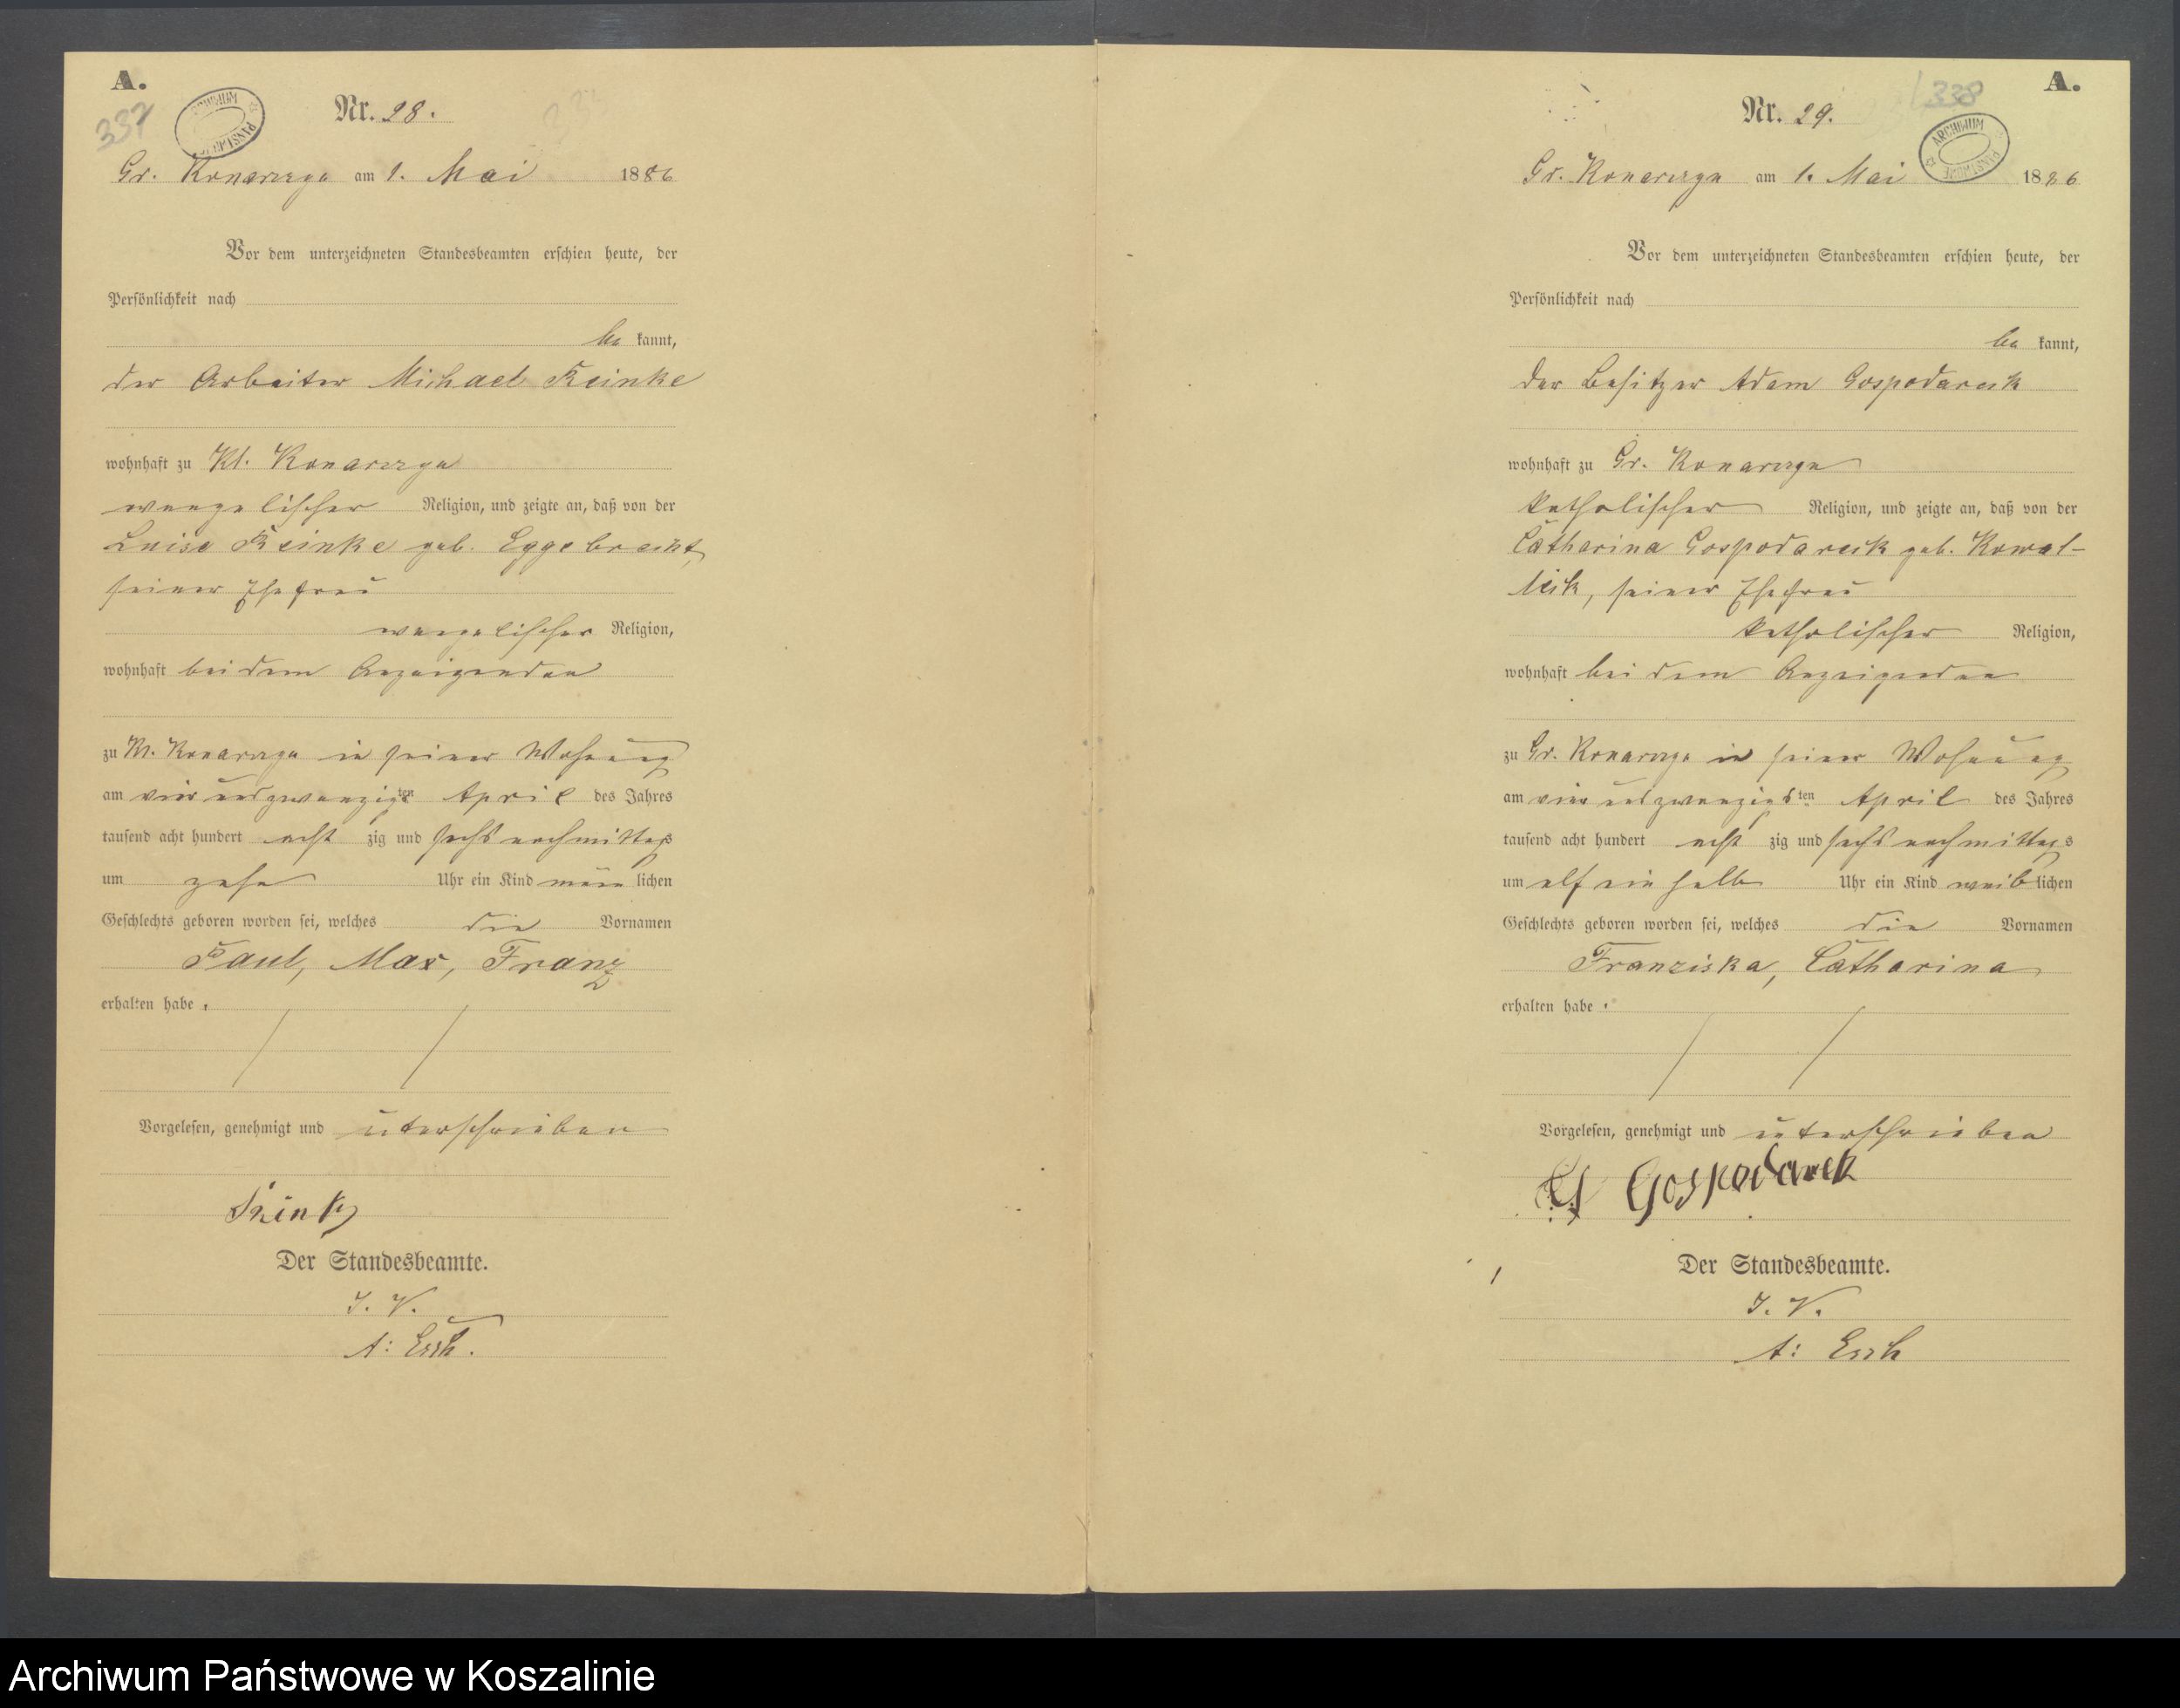 A.
337
ARCHIWUM PAŃSTWOWE
Nr. 28.
Gr. Konarczyn am 1. Mai 1886
Vor dem unterzeichneten Standesbeamten erschien heute, der
Persönlichkeit nach
be kannt,
der Arbeiter Michael Reinke
wohnhaft zu Kl. Konarczyn
evangelischer Religion, und zeigte an, daß von der
Luise Reinke geb. Eggebrecht,
seiner Ehefrau
evangelischer Religion,
wohnhaft bei dem Anzeigenden
zu Kl. Konarczyn in seiner Wohnung
am vier und zwanzigsten April des Jahres
tausend acht hundert acht zig und sechs nachmittags
um zehn Uhr ein Kind männ lichen
Geschlechts geboren worden sei, welches die Vornamen
Paul, Max, Franz
erhalten habe.
Vorgelesen, genehmigt und unterschrieben
Der Standesbeamte.
I. V.
A.
338
ARCHIWUM PAŃSTWOWE
Nr. 29.
Gr. Konarczyn am 1. Mai 1886
Vor dem unterzeichneten Standesbeamten erschien heute, der
Persönlichkeit nach
be kannt,
der Besitzer Adam Gospodarek
wohnhaft zu Gr. Konarczyn
katholischer Religion, und zeigte an, daß von der
Catharina Gospodarek geb. Kowal-
lek, seiner Ehefrau
katholischer Religion,
wohnhaft bei dem Anzeigenden
zu Gr. Konarczyn in seiner Wohnung
am vier und zwanzigsten April des Jahres
tausend acht hundert acht zig und sechs nachmittags
um elf ein halb Uhr ein Kind weib lichen
Geschlechts geboren worden sei, welches die Vornamen
Franziska, Catharina
erhalten habe.
Vorgelesen, genehmigt und unterschrieben
Gospodarek
Der Standesbeamte.
I. V.
Archiwum Państwowe w Koszalinie